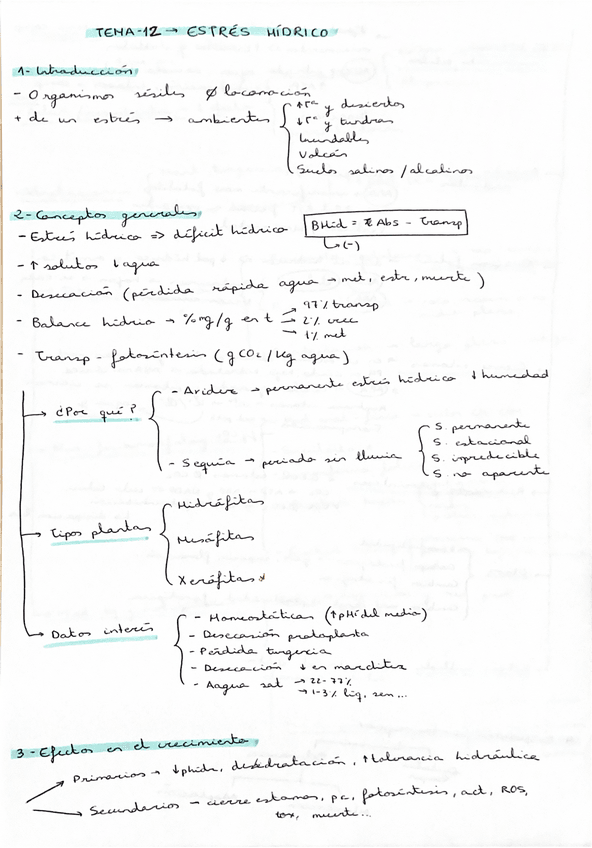 TEMA-12 → ESTRÉS HÍDRICO
1- Introducción
- Organismos sésiles ∅ locomoción
+ de un estrés → ambientes
↑Tª y desiertos
↓Tª y tundras
Inundables
Volcán
Suelos salinos / alcalinos
2- Conceptos generales
- Estrés hídrico => déficit hídrico
BHid = Abs - Transp
↳(-)
- ↑ solutos ↓ agua
- Desecación (pérdida rápida agua → met, estr, muerte)
- Balance hídrico → % mg/g en t
→ 97% transp
→ 2% crec
→ 1% met
- Transp - fotosíntesis (g CO2 / Kg agua)
→ ¿Por qué?
- Aridez → permanente estrés hídrico ↓ humedad
- Sequía → periodo sin lluvia
S. permanente
S. estacional
S. impredecible
S. no aparente
→ Tipos plantas
Hidrófitas
Mesófitas
Xerófitas *
→ Datos interés
- Homeostáticas (↑pHid del medio)
- Desecasión protoplasta
- Pérdida turgencia
- Desecación ↓ en marchitez
- Aagua sat → 22-77%
→ 1-3% liq, sem...
3- Efectos en el crecimiento
Primarios → ↓phidr, deshidratación, ↑tolerancia hidráulica
Secundarios → cierre estomas, pc, fotosíntesis, act, ROS,
tox, muerte...